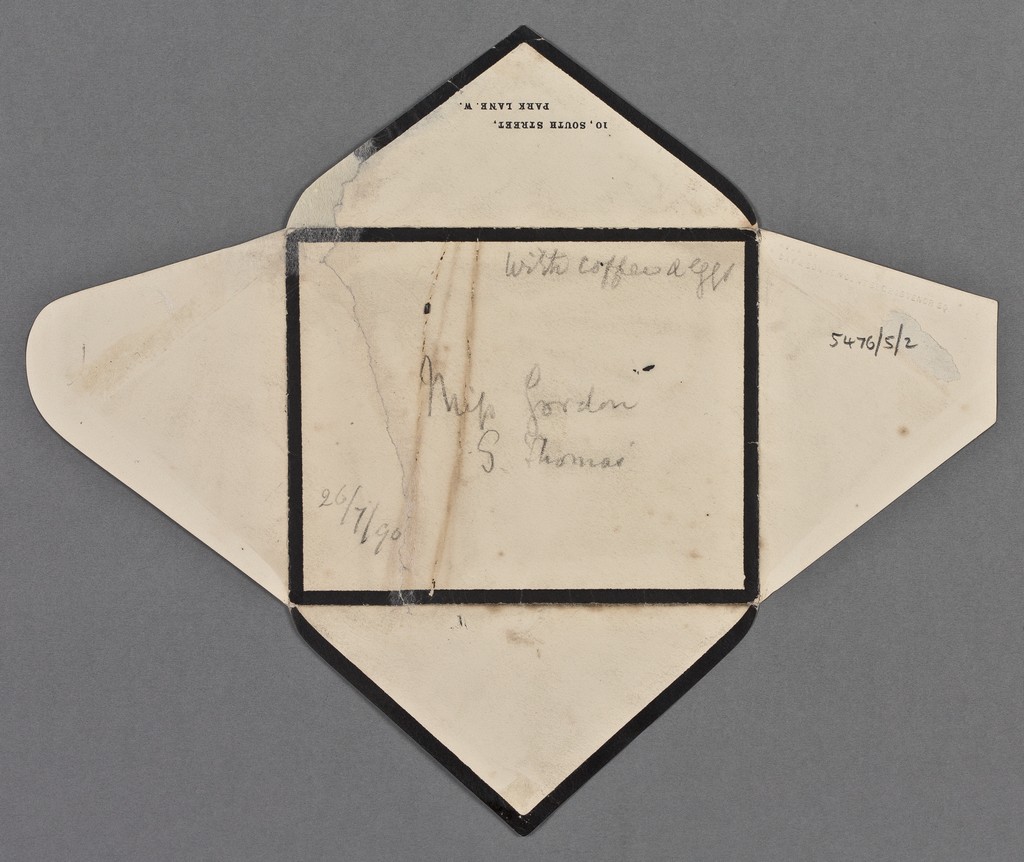 10, SOUTH STREET,
PARK LANE. W.
With coffee & eggs
Miss Gordon
S. Thomas'
26/7/90
5476/5/2